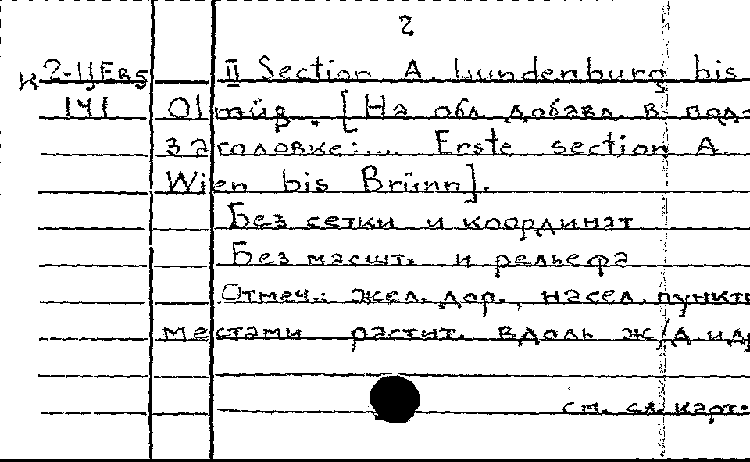 2
К 2-11/Ев5 II Section A. Lundenburg bis
141 Olmüz. [На обл. добавл. в подз
заголовке:... Erste section A.
Wien bis Brünn].
Без сетки и координат
Без масшт. и рельефа
Отмеч.: жел. дор., насел. пункт
местами растит. вдоль ж/д и др
см. сл. карт.